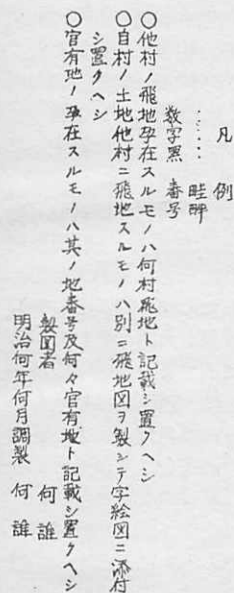 凡例
……畦畔
数字黒 番号
○他村ノ飛地孕在スルモノハ何村飛地ト記載シ置クヘシ
○自村ノ土地他村ニ飛地スルモノハ別ニ飛地図ヲ製シテ字絵図ニ添付
シ置クヘシ
○官有地ノ孕在スルモノハ其ノ地番号及何々官有地ト記載シ置クヘシ
製図者 何誰
明治何年何月調製 何誰